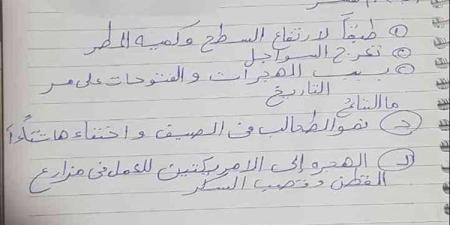 ① طبقاً لارتفاع السطح وكميه المطر
② تعرج السواحل
③ بسبب الهجرات والفتوحات على مر
التاريخ
ما النتائج
② نمو الطحالب فى الصيف واختفاءها شتاءاً
③ الهجره إلى الامريكتين للعمل فى مزارع
القطن وقصب السكر